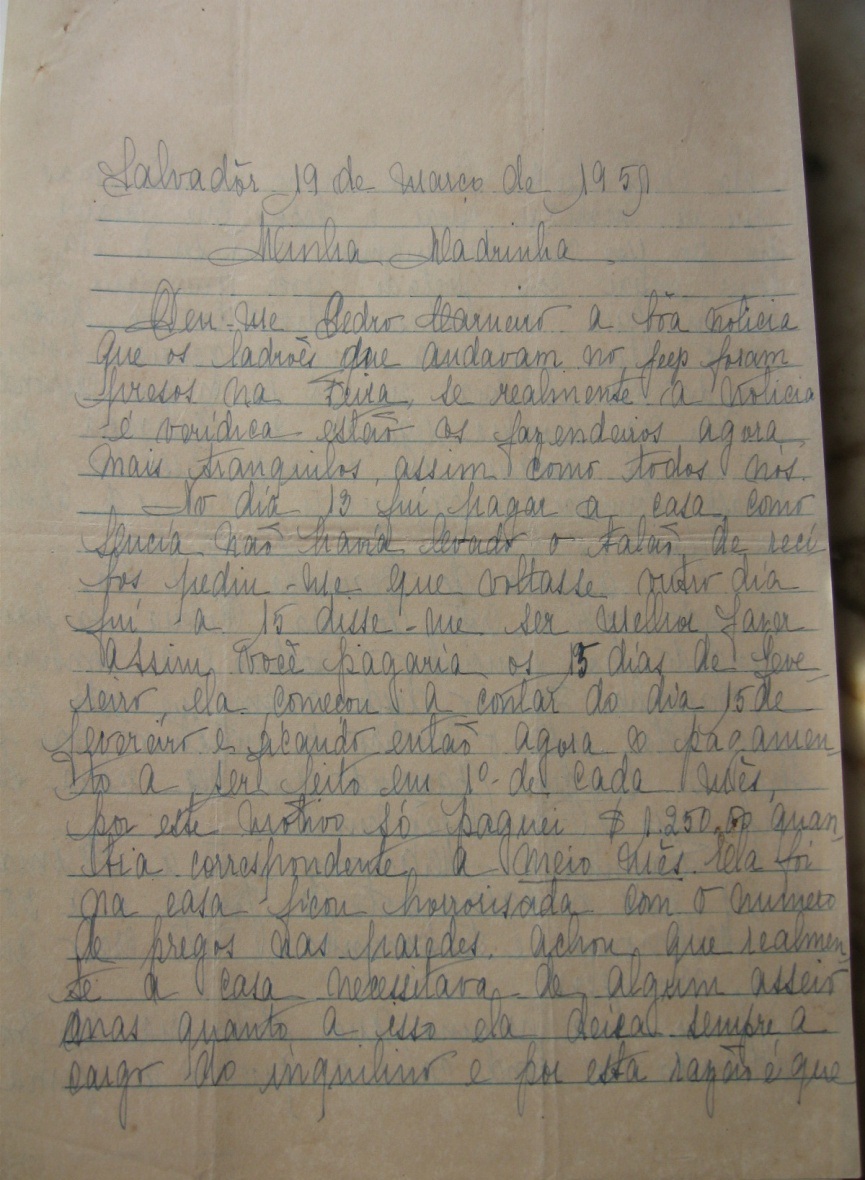 Salvadôr 19 de março de 195
Minha Madrinha
Deu-me Pedro Carneiro a bôa noticia
que os ladrões que andavam no jeep foram
presos na Feira, se realmente a noticia
é verídica estão os fazendeiros agora
mais tranquilos, assim como todos nós.
No dia 13 fui pagar a casa, como
Lucia não havia levado o talão de reci
bos pediu-me que voltasse outro dia
fui a 15 disse-me ser melhor fazer
assim, você pagaria os 15 dias de feve-
reiro, ela começou a contar do dia 15 de
fevereiro e ficando então agora o pagamen-
to a ser feito em 1º de cada mês,
por este motivo só paguei $ 1.250,00 quan-
tia correspondente a meio mês. Ela foi
na casa ficou horrorisada com o numero
de pregos nas paredes. Achou que realmen-
te a casa necessitava de algum asseio
mas quanto a isso ela deixa sempre a
cargo do inquilino e por esta razão é que